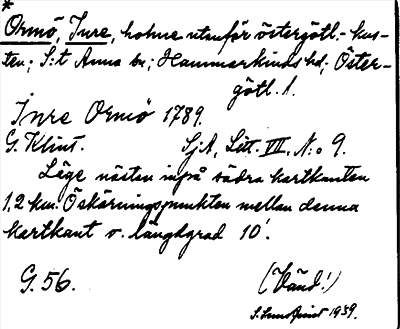 *
Ormö, Inre, holme utanför östergötl.-kus-
ten; S:t Anna sn; Hammarkinds hd; Öster-
götl. l.
Inre Ormö 1789.
G. Klint. SjA, Litt. VII, N:o 9.
Läge nästan inpå södra kartkanten
1,2 km. Ö skärningspunkten mellan denna
kartkant o. längdgrad 10'.
G. 56. (Vänd!)
1939.